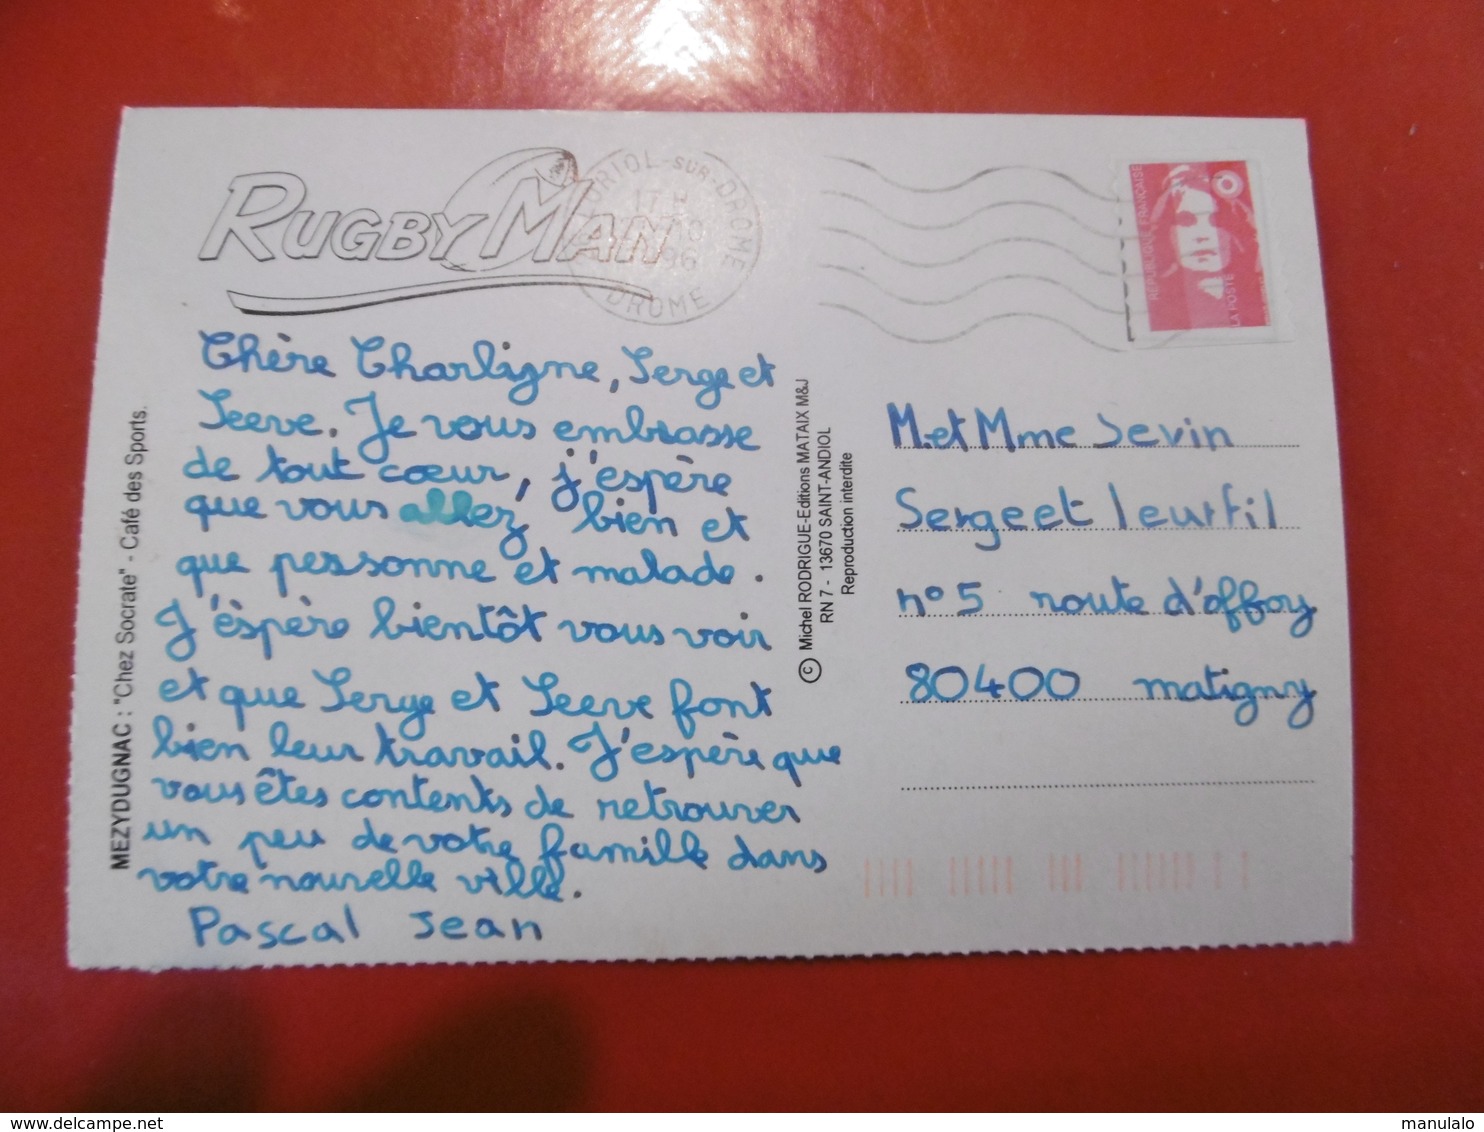 RUGBYMAN
RIOL-SUR-DROME
17 H
96
DROME
RÉPUBLIQUE FRANÇAISE
LA POSTE
MEZYDUGNAC : "Chez Socrate" - Café des Sports.
Chère Charligne, Serge et
Seeve. Je vous embrasse
de tout cœur, j'espère
que vous allez bien et
que personne et malade.
J'éspère bientôt vous voir
et que Serge et Seeve font
bien leur travail. J'espère que
vous êtes contents de retrouver
un peu de votre famille dans
votre nouvelle ville.
Pascal Jean
© Michel RODRIGUE-Editions MATAIX M&J
RN 7 - 13670 SAINT-ANDIOL
Reproduction interdite
M.et Mme Sevin
Serge et leur fil
n° 5 route d'offoy
80400 matigny
manulalo